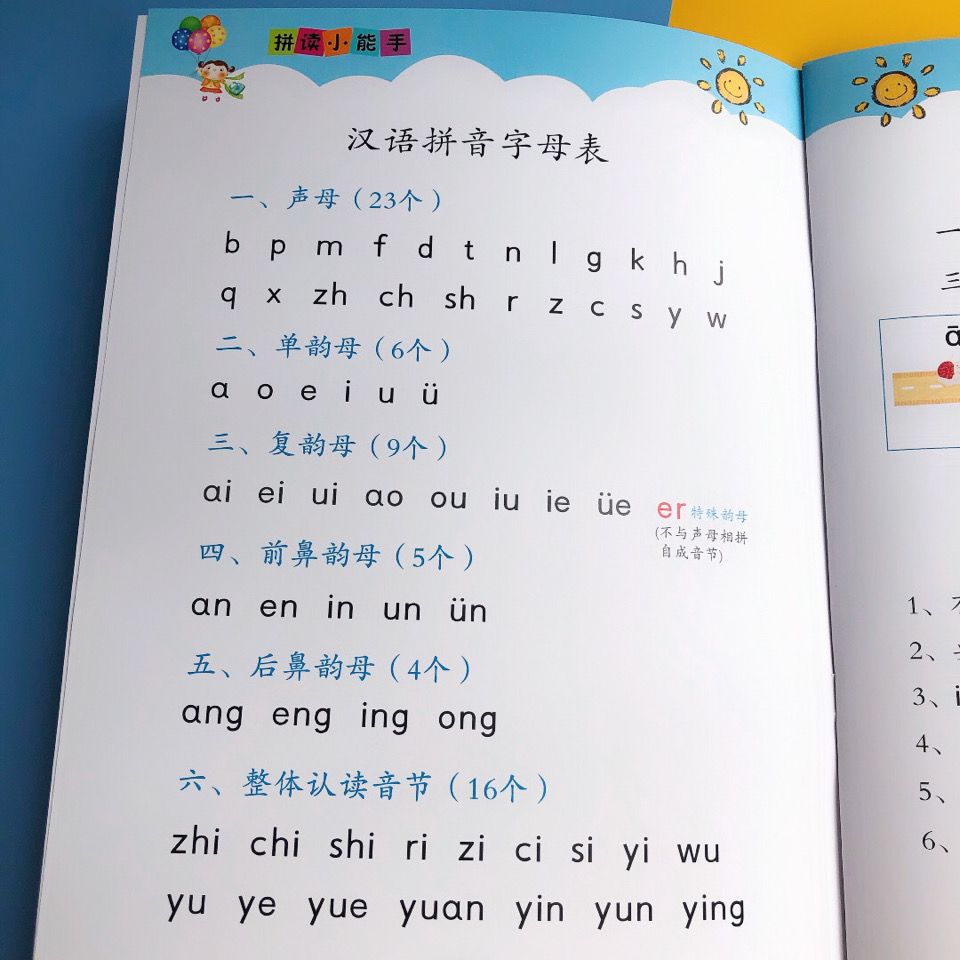 拼读小能手
汉语拼音字母表
一、声母（23个）
b p m f d t n l g k h j
q x zh ch sh r z c s y w
二、单韵母（6个）
ɑ o e i u ü
三、复韵母（9个）
ɑi ei ui ɑo ou iu ie üe er 特殊韵母
(不与声母相拼
自成音节)
四、前鼻韵母（5个）
ɑn en in un ün
五、后鼻韵母（4个）
ɑng eng ing ong
六、整体认读音节（16个）
zhi chi shi ri zi ci si yi wu
yu ye yue yuɑn yin yun ying
一
三
ɑ̄
1、
2、
3、i
4、
5、
6、